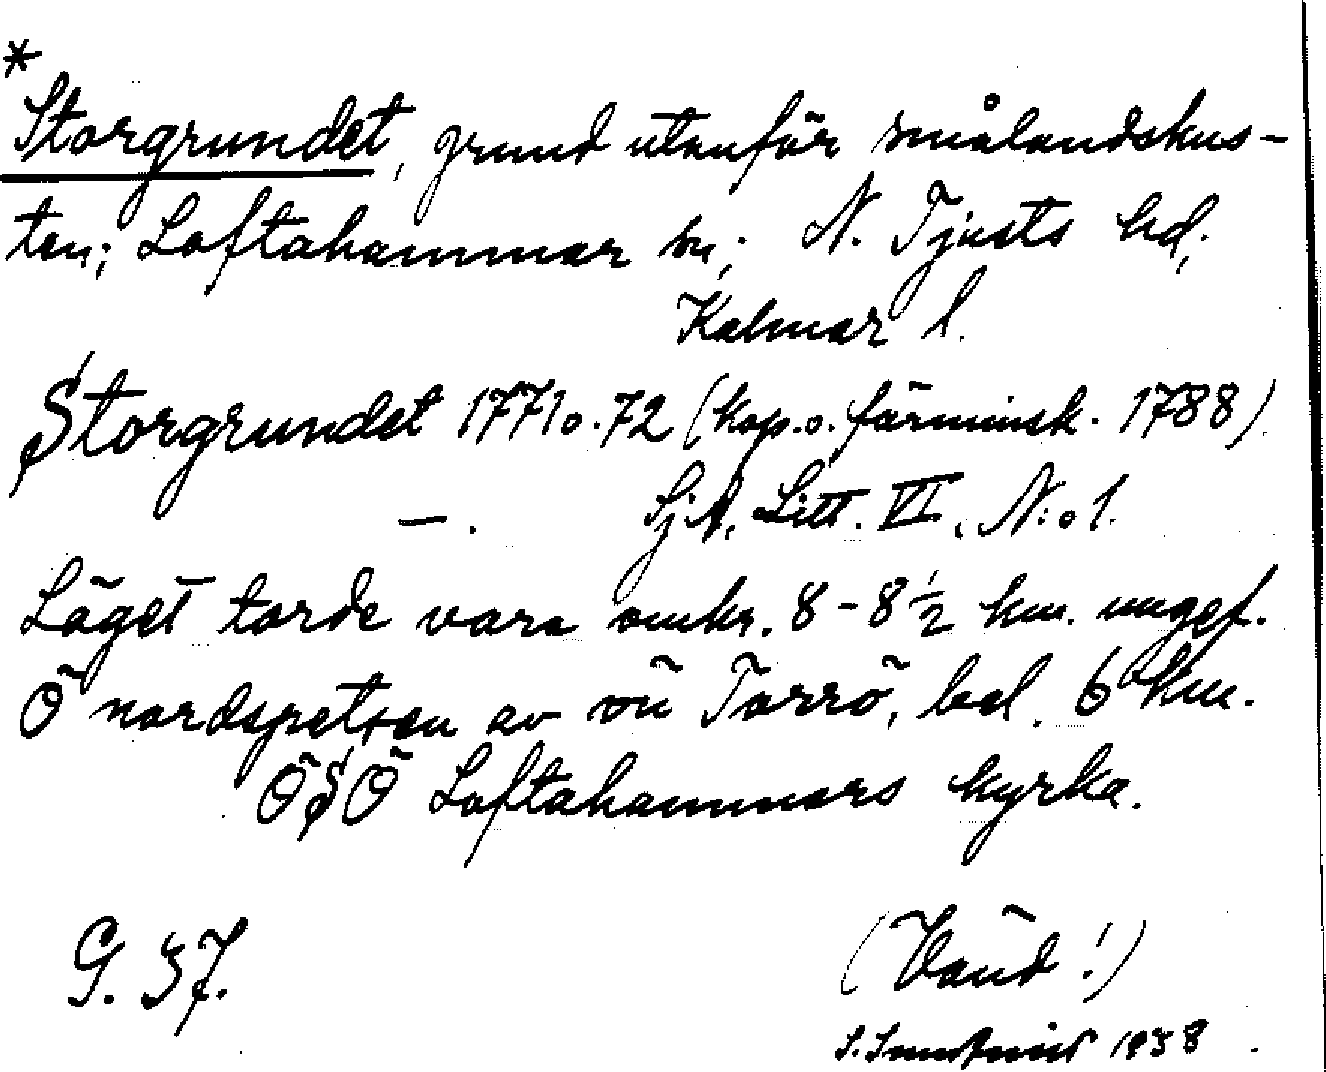 *
Storgrundet, grund utanför smålandskus-
ten; Loftahammar sn; N. Tjusts hd,
Kalmar l.
Storgrundet 1771 o. 72 (kop. o. förminsk. 1788)
—. SjA, Litt. VI, N:o 1.
Läget torde vara omkr. 8-8½ km. ungef.
Ö nordspetsen av ön Torrö, bel. 6 km.
ÖSÖ Loftahammars kyrka.
G. 37. (Vänd!)
1938